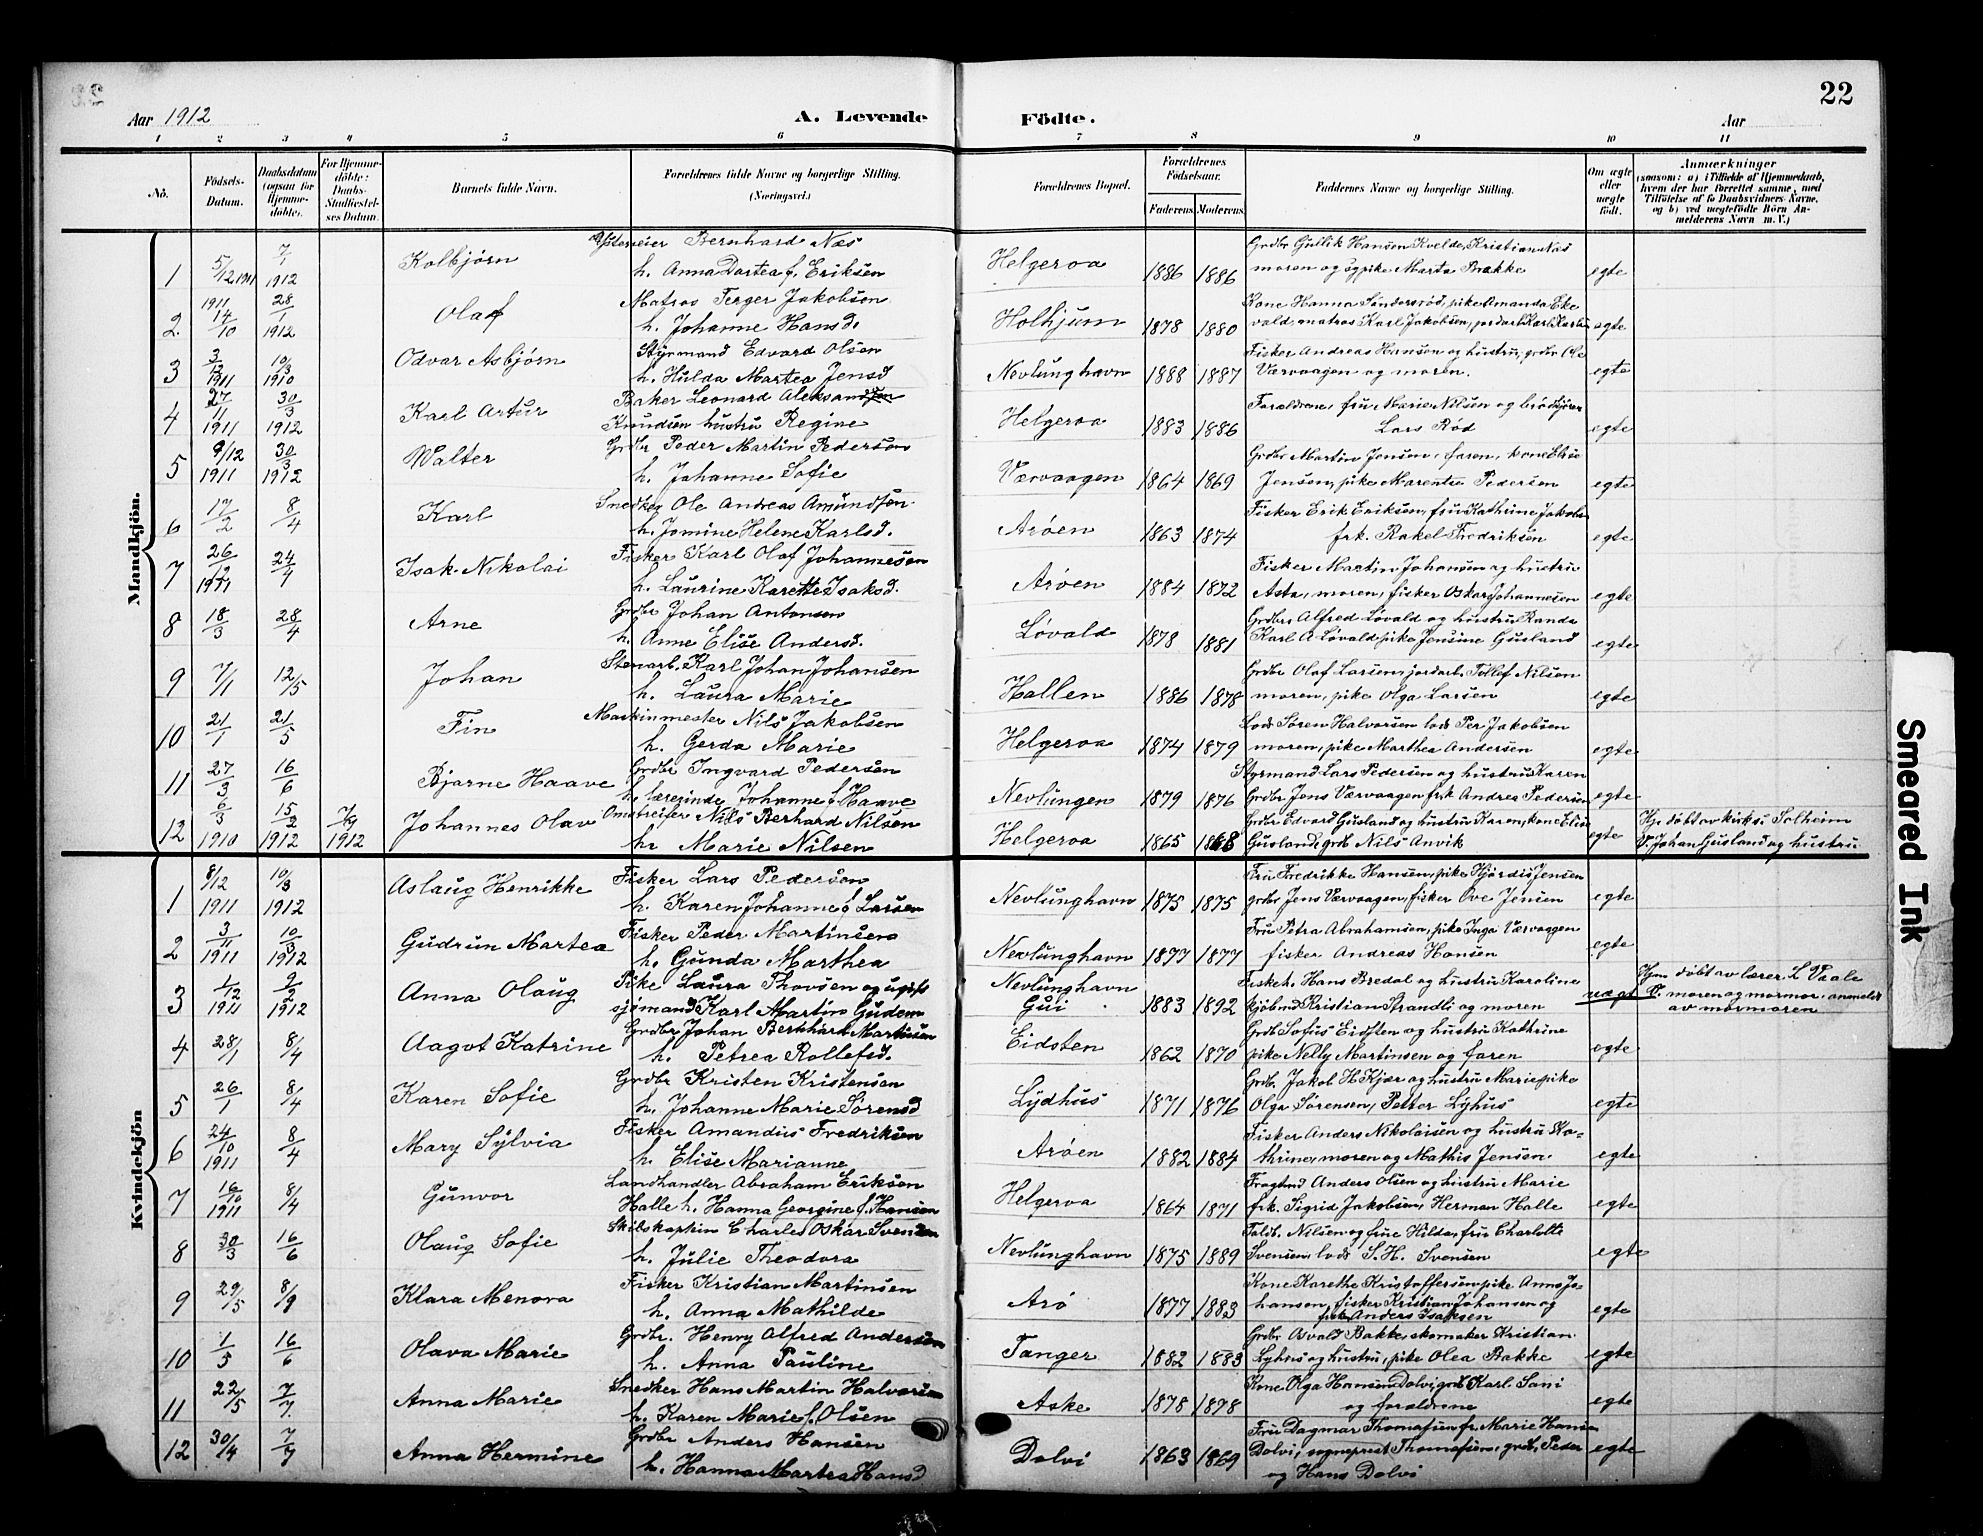 22
Aar 1912
A. Levende
Födte.
Aar
1 2 3 4 5 6 7 8 9 10 11
No.
Födsels-
Datum.
Daabsdatum
(ogsaa for
Hjemme-
döbte).
For Hjemme-
döbte:
Daabs-
Stadfæstel-
ses Datum.
Barnets fulde Navn.
Forældrenes fulde Navne og borgerlige Stilling.
(Næringsvei.)
Forældrenes Bopæl.
Forældrenes
Födselsaar.
Faderens. Moderens.
Faddernes Navne og borgerlige Stilling.
Om ægte
eller
uægte
födt.
Anmærkninger
(saasom: a) i Tilfælde af Hjemmedaab,
hvem der har forrettet samme, med
Tilföielse af to Daabsvidners Navne,
og b) ved uægtefödte Börn An-
melderens Navn m. V.)
Mandkjön.
1 5/12 1911 7/1 1912 Kolbjørn Bernhard Næs Helgeroa 1886 1886 Grdbr Gullik Hansen Kvelde, Kristian Næs
h. Anna Dortea f. Eriksen moren og pike Marta Bakke egte
2 1911 14/10 28/1 1912 Olaf Matros Terger Jakobsen Holtjum 1878 1880 Kone Hanna Söndersrød, pike Amanda Eke
h. Johanne Hansd. vald, matros Karl Jakobsen, egte
3 3/12 1911 10/3 1910 Odvar Asbjørn Styrmand Edvard Olsen Nevlunghavn 1888 1887 Fisker Andreas Hansen og hustru, grdbr Ole
h. Hulda Martea Jensd Værvaagen og moren. egte
4 27/11 1911 30/3 1912 Karl Artur Baker Leonard Aleksandsen Helgeroa 1883 1886 Forældrene, fru Marie Nilsen og
Knudsen hustru Regine Lars Rød egte
5 9/12 1911 30/3 1912 Walter Grdbr Peder Martin Pedersen Værvaagen 1864 1869 Grdbr Martin Jensen, faren, kone Elise
h. Johanne Sofie Jensen, pike Marentse Pedersen egte
6 17/2 8/4 Karl Snedker Ole Andreas Amundsen Arøen 1863 1874 Fisker Erik Eriksen, fru Kathrine Jakobs
h. Jomine Helene Karlsd. frk. Rakel Fredriksen egte
7 26/12 1911 24/4 Isak Nikolai Fisker Karl Olaf Johannesen Arøen 1884 1872 Fisker Martin Johansen og hustru
h. Laurine Karette Isaksd. Asta, moren, fisker Oskar Johannesen egte
8 18/3 28/4 Arne Grdbr Johan Antonsen Løvald 1878 1881 Grdbr Alfred Løvald og hustru Randa
h. Anne Elise Andersd. Karl A Løvald, pike Jensine Gusland egte
9 7/1 12/5 Johan Stenarb. Karl Johan Johansen Hallen 1886 1878 Grdbr Olaf Larsen, jordarb. Tollef Nilsen
h. Laura Marie moren, pike Olga Larsen egte
10 21/1 21/5 Fin Maskinmester Nils Jakobsen Helgeroa 1874 1879 Lods Søren Halvorsen lods Per Jakobsen
h. Gerda Marie moren, pike Marthea Andersen egte
11 27/3 16/6 Bjarne Haave Grdbr Ingvard Pedersen Nevlungen 1879 1876 Styrmand Lars Pedersen og hustru Karen
h. lærerinde Johanne f. Haave Grdbr Jens Værvaagen frk Andrea Pedersen egte
12 6/3 1910 15/2 1912 7/9 1912 Johannes Olav Omstreifer Nils Berhard Nilsen Helgeroa 1865 1868 Grdbr Edvard Gusland og hustru Karen, kone Elise
h. Marie Nilsen Gusland, grdb Nils Anvik egte Hj. døbt av kirkes. Solheim
V. Johan Gusland og hustru
Kvindekjön
1 8/12 1911 10/3 1912 Aslaug Henrikke Fisker Lars Pedersen Nevlunghavn 1875 1875 Fru Fredrikke Hansen, pike Hjørdis Jensen
h. Karen Johanne f. Larsen grdbr Jens Værvaagen, fisker Ove Jensen egte
2 3/11 1911 10/3 1912 Gudrun Martea Fisker Peder Martinsen Nevlunghavn 1877 1877 Fru Petra Abrahamsen, pike Inga Værvaagen
h. Gunda Marthea fisker Andreas Hansen egte
3 1/12 1911 9/2 1912 Anna Olaug Pike Laura Thovsen og ugift Nevlunghavn 1883 1892 Fiskeh. Hans Bredal og hustru Karoline
sjømand Karl Martin Gudem Gui kjøbmd Kristian Strandli og moren uægt Hjm døbt av lærer L Vaale
V. moren og mormor. anmeldt
av mormoren
4 28/1 8/4 Aagot Katrine Grdbr Johan Bernhard Martinsen Eidsten 1862 1870 Grdb Sofus Eidsten og hustru Kathrine
h. Petrea Rollefsd. pike Nelly Martinsen og faren egte
5 26/1 8/4 Karen Sofie Grdbr Kristen Kristensen Lydhus 1871 1876 Grdb. Jakob H Kjær og hustru Marie, pike
h. Johanne Marie Sørensd Olga Sørensen, Petter Lyhus egte
6 24/10 1911 8/4 Mary Sylvia Fisker Amandus Fredriksen Arøen 1882 1884 Fisker Anders Nikolaisen og hustru Ka-
h. Elise Marianne thrine, moren og Mathis Jensen egte
7 16/10 1911 8/4 Gunvor Landhandler Abraham Eriksen Helgeroa 1864 1871 Fragtmd Anders Olsen og hustru Marie
Halle h. Hanna Georgine f. Hansen frk. Sigrid Jakobsen, Herman Halle egte
8 30/3 16/6 Olaug Sofie Skibskaptein Charles Oskar Svensen Nevlunghavn 1875 1889 Toldb. Nilsen og frue Hilda, fru Charlotte
h. Julie Theodora Svensen, lods S. H. Svensen egte
9 29/5 8/9 Klara Menora Fisker Kristian Martinsen Arø 1877 1883 Kone Karethe Kristoffersen, pike Anna Jo-
h. Anna Mathilde hansen, fisker Kristian Johansen og
Anders Isaksen egte
10 1/5 16/6 Olava Marie Grdbr. Henry Alfred Andersen Tanger 1882 1883 Grdbr Osvald Bakke, skomaker Kristian
h. Anna Pauline Lyhus og hustru, pike Olea Bakke egte
11 22/5 7/7. Anna Marie Snedker Hans Martin Halvorsen Aske 1878 1878 Kone Olga Hansen Dolvi, grdb Karl Sani
h. Karen Marie f. Olsen og forældrene egte
12 30/4 7/7 Anna Hermine Grdbr Anders Hansen Dolvi 1863 1869 Fru Dagmar Thomasen fr. Marie Hansen
h. Hanna Martea Hansd Dolvi, sogneprest Thomasen, grdb. Peder egte
og Hans Dolvi
Smeared Ink